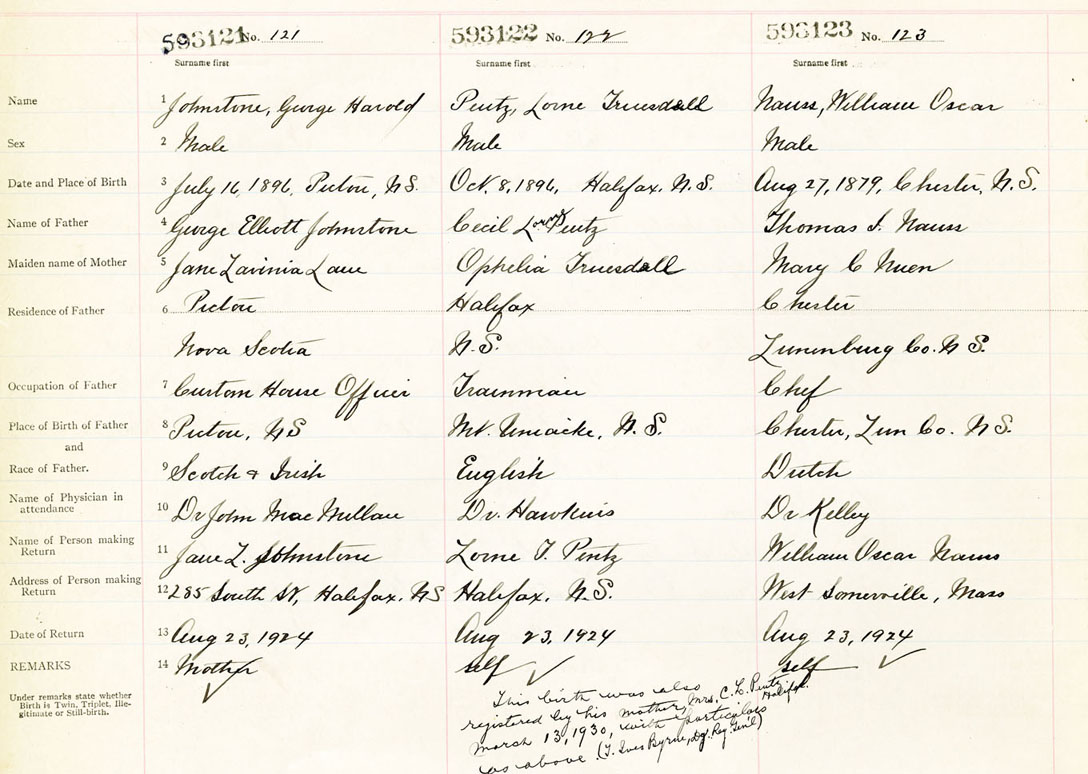 593121 No. 121 593122 No. 122 593123 No. 123
Surname first Surname first Surname first
Name 1 Johnstone, George Harold Pentz, Lorne Truesdell Nauss, William Oscar
Sex 2 Male Male Male
Date and Place of Birth 3 July 16, 1896, Pictou, N.S. Oct. 8, 1896, Halifax, N.S. Aug 27, 1879, Chester, N.S.
Name of Father 4 George Elliott Johnstone Cecil Lorny Pentz Thomas I. Nauss
Maiden name of Mother 5 Jane Lavinia Lane Ophelia Truesdell Mary C
Residence of Father 6 Pictou Halifax Chester
Nova Scotia N.S. Lunenburg Co. N S.
Occupation of Father 7 Custom House Officer Trainman Chef
Place of Birth of Father 8 Pictou, NS Mt. Uniacke, N.S. Chester, Lun Co. N S.
and
Race of Father. 9 Scotch & Irish English Dutch
Name of Physician in
attendance 10 Dr John MacMillan Dr. Hawkins Dr Kelley
Name of Person making
Return 11 Jane L. Johnstone Lorne T. Pentz William Oscar Nauss
Address of Person making
Return 12 285 South St, Halifax. NS Halifax. N.S. West Somerville, Mass
Date of Return 13 Aug 23, 1924 Aug 23, 1924 Aug 23, 1924
REMARKS 14 Mother self self
Under remarks state whether
Birth is Twin, Triplet, Ille-
gitimate or Still-birth.
This birth was also
registered by his mother, Mrs. C. L. Pentz, Halifax.
March 13, 1930, with particulars
as above. (T. Ives Byrne, Dy. Reg. Gen'l)